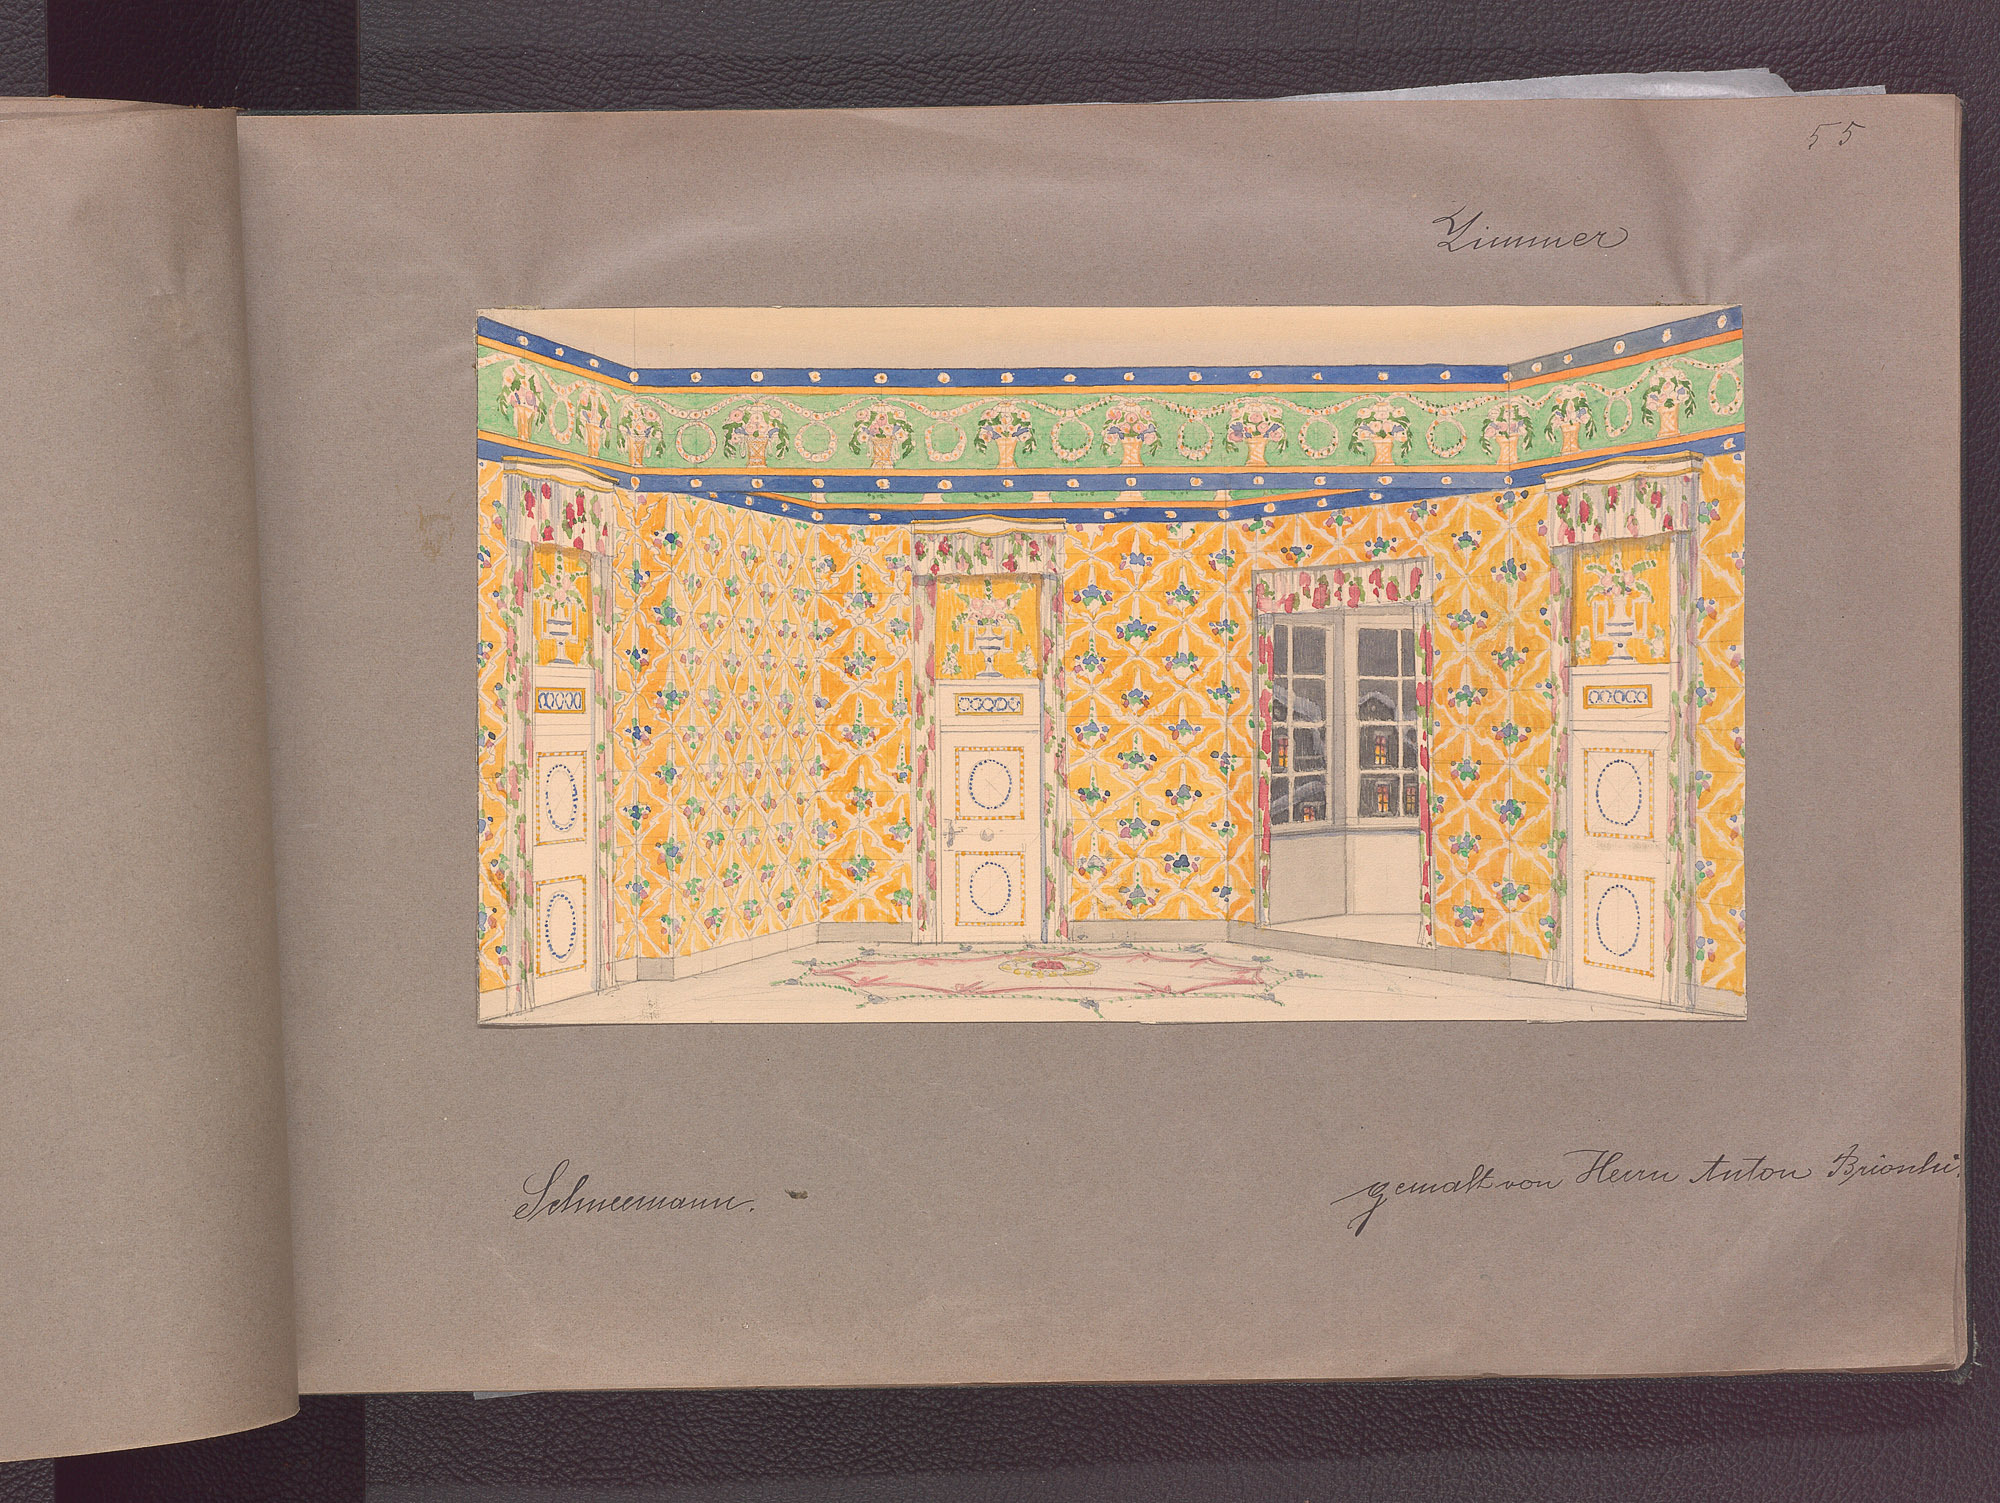 55
Zimmer
Schneemann.
gemalt von Herrn Anton Brioschi.